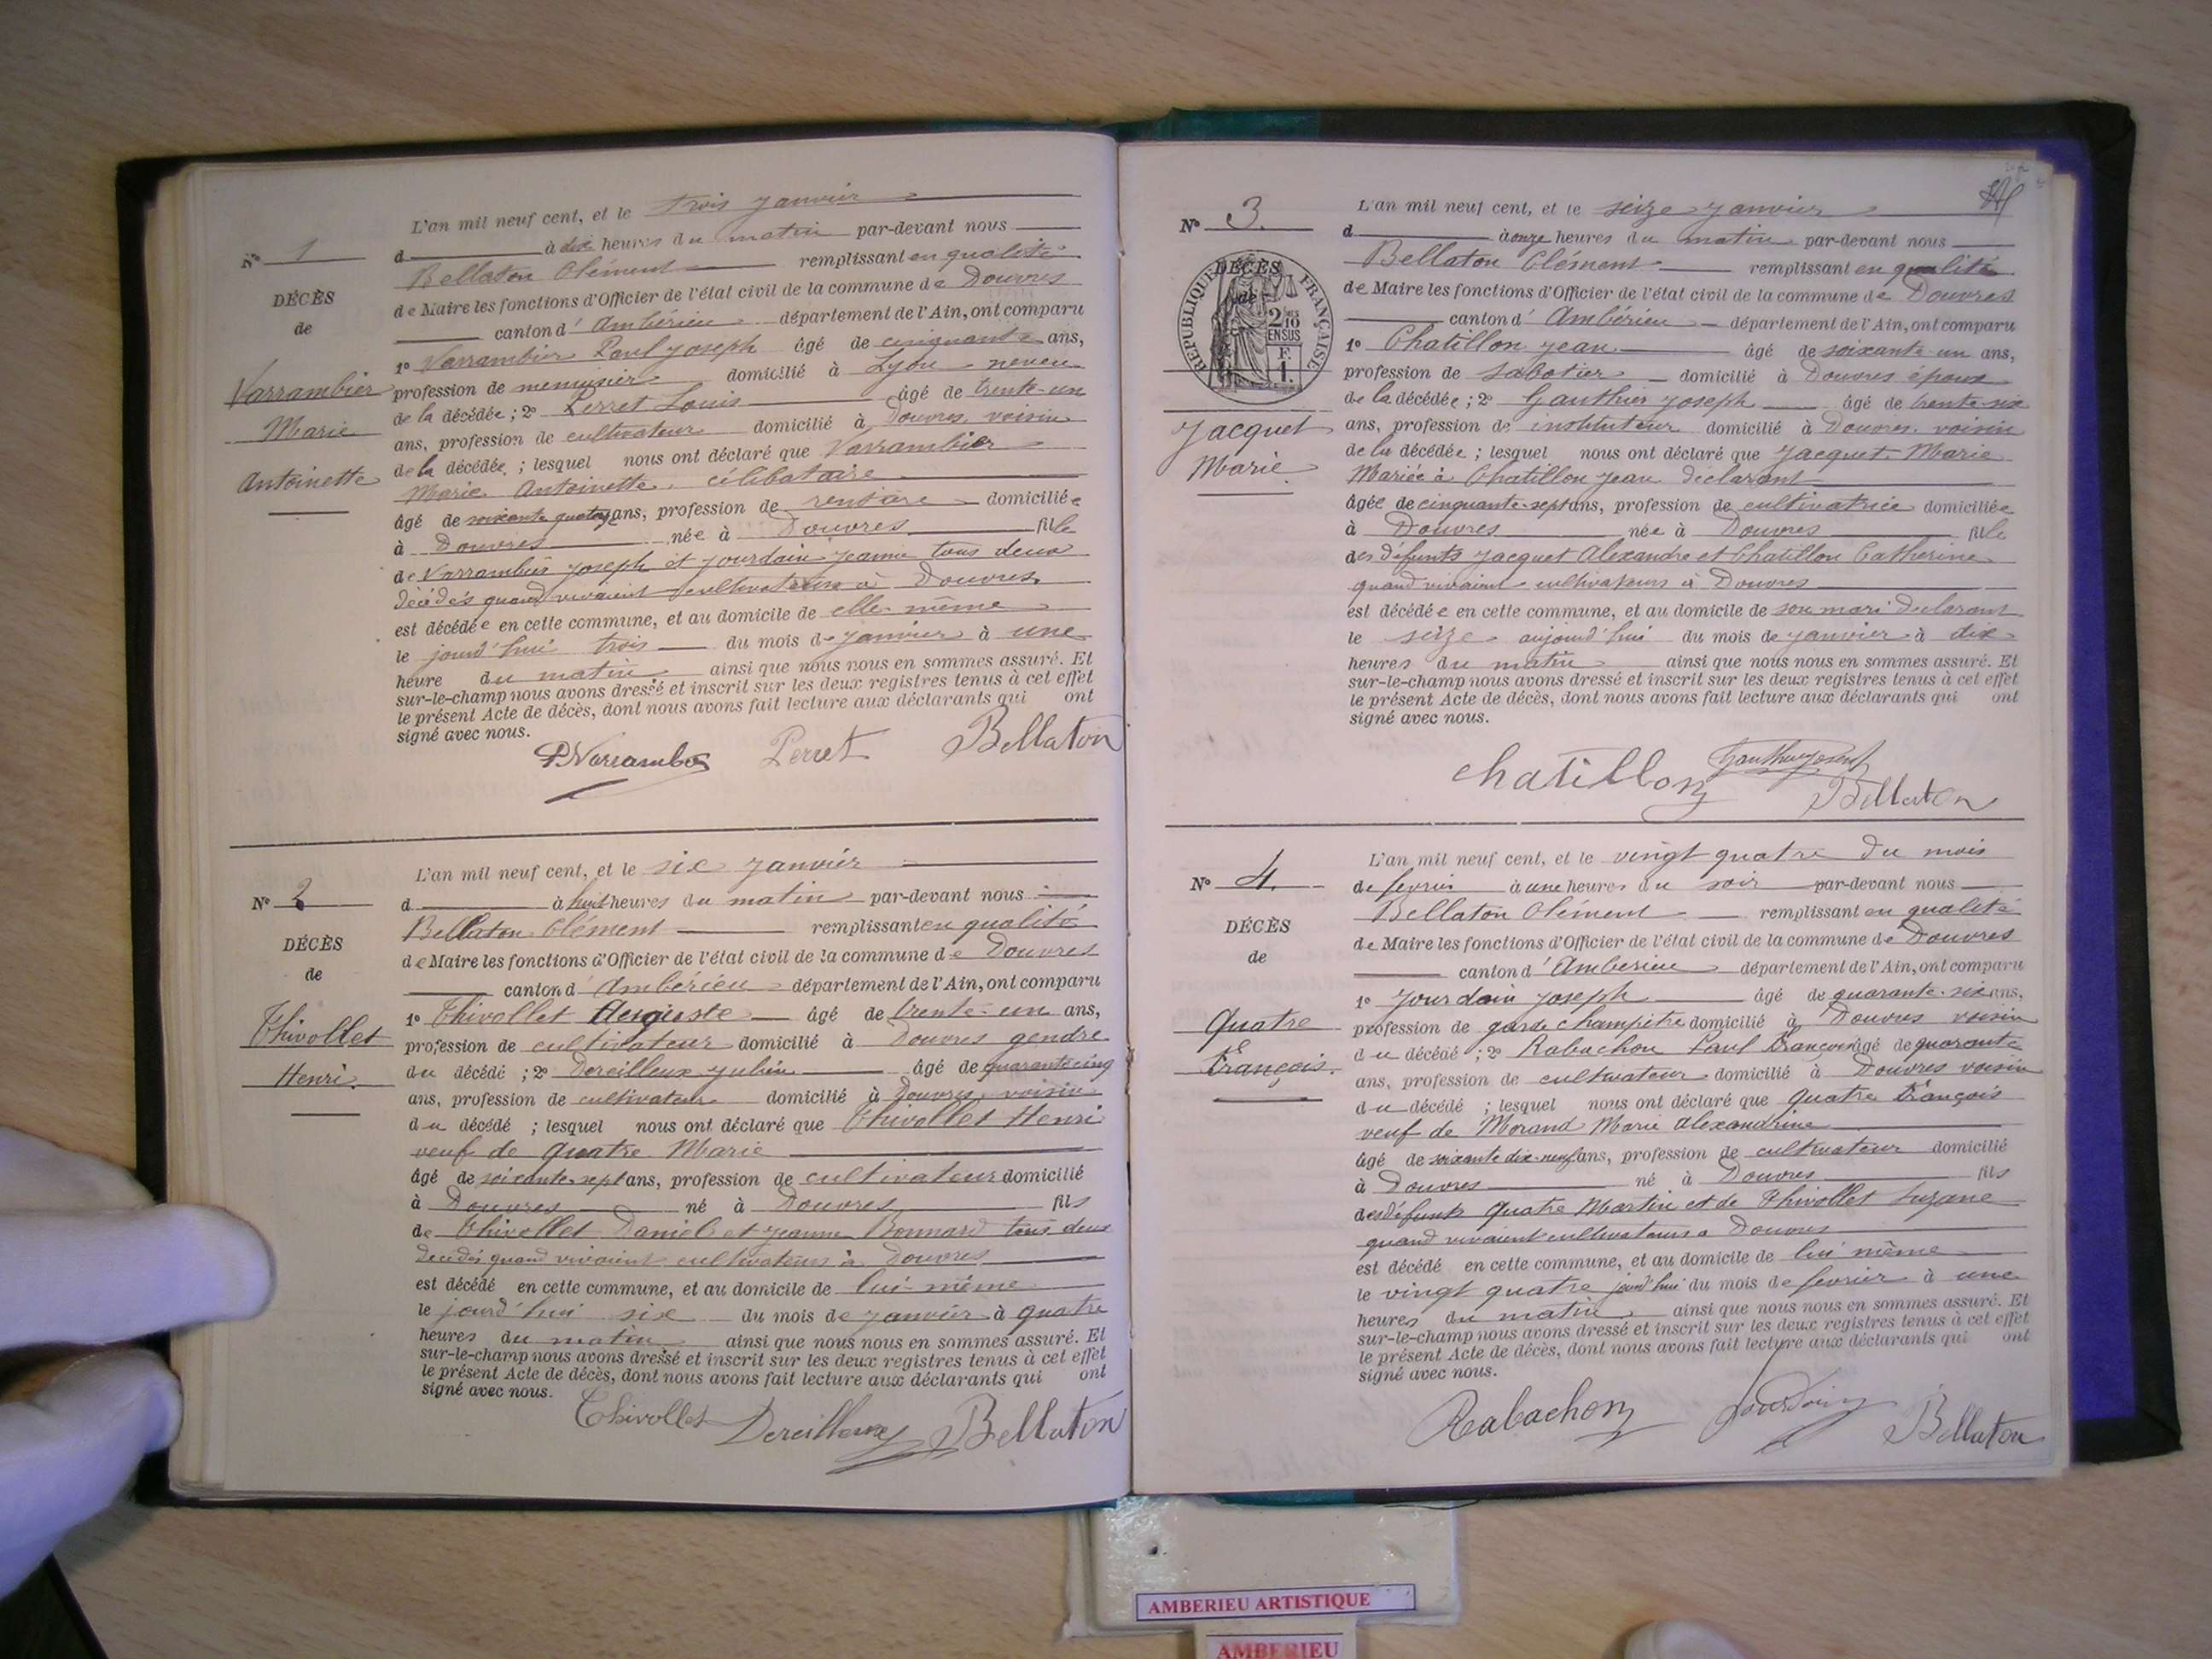 N° 1
DÉCÈS
de
Varrambier
Marie
Antoinette
L'an mil neuf cent, et le trois janvier
d à dix heures du matin par-devant nous
Bellaton Clément remplissant en qualité
de Maire les fonctions d'Officier de l'état civil de la commune de Douvres
canton d' Ambérieu département de l'Ain, ont comparu
1° Varrambier Paul Joseph âgé de cinquante ans,
profession de menuisier domicilié à Lyon neveu
de la décédée ; 2° Perret Louis âgé de trente-un
ans, profession de cultivateur domicilié à Douvres, voisin
de la décédée ; lesquel nous ont déclaré que Varrambier
Marie Antoinette, célibataire
âgé de soixante quatorze ans, profession de rentière domiciliée
à Douvres née à Douvres fille
de Varrambier Joseph et Jourdain Jeanne tous deux
décédés quand vivaient cultivateurs à Douvres
est décédée en cette commune, et au domicile de elle-même
le jourd'hui trois du mois de janvier à une
heure du matin ainsi que nous nous en sommes assuré. Et
sur-le-champ nous avons dressé et inscrit sur les deux registres tenus à cet effet
le présent Acte de décès, dont nous avons fait lecture aux déclarants qui ont
signé avec nous.
Perret Bellaton
N° 2
DÉCÈS
de
Thivollet
Henri.
L'an mil neuf cent, et le six janvier
d à huit heures du matin par-devant nous
Bellaton Clément remplissant en qualité
de Maire les fonctions d'Officier de l'état civil de la commune de Douvres
canton d' Ambérieu département de l'Ain, ont comparu
1° Thivollet Auguste âgé de trente-un ans,
profession de cultivateur domicilié à Douvres gendre
du décédé ; 2° Dereilleux Jubin âgé de quarante cinq
ans, profession de cultivateur domicilié à Douvres, voisin
du décédé ; lesquel nous ont déclaré que Thivollet Henri
veuf de Quatre Marie
âgé de soixante-sept ans, profession de cultivateur domicilié
à Douvres né à Douvres fils
de Thivollet Daniel et Jeanne Bonnard tous deux
décédés quand vivaient cultivateurs à Douvres
est décédé en cette commune, et au domicile de lui-même
le jourd'hui six du mois de janvier à quatre
heures du matin ainsi que nous nous en sommes assuré. Et
sur-le-champ nous avons dressé et inscrit sur les deux registres tenus à cet effet
le présent Acte de décès, dont nous avons fait lecture aux déclarants qui ont
signé avec nous.
Thivollet Dereilleux Bellaton
N° 3.
DÉCÈS
de
RÉPUBLIQUE FRANÇAISE
2/10
EN SUS
F.
1.
Jacquet
Marie
L'an mil neuf cent, et le seize janvier
d à onze heures du matin par-devant nous
Bellaton Clément remplissant en qualité
de Maire les fonctions d'Officier de l'état civil de la commune de Douvres
canton d' Ambérieu département de l'Ain, ont comparu
1° Chatillon Jean âgé de soixante un ans,
profession de sabotier domicilié à Douvres époux
de la décédée ; 2° Gauthier Joseph âgé de trente-six
ans, profession de instituteur domicilié à Douvres, voisin
de la décédée ; lesquel nous ont déclaré que Jacquet Marie
Mariée à Chatillon Jean déclarant
âgée de cinquante-sept ans, profession de cultivatrice domiciliée
à Douvres née à Douvres fille
des défunts Jacquet Alexandre et Chatillon Catherine
quand vivaient cultivateurs à Douvres
est décédée en cette commune, et au domicile de son mari déclarant
le seize aujourd'hui du mois de janvier à dix
heures du matin ainsi que nous nous en sommes assuré. Et
sur-le-champ nous avons dressé et inscrit sur les deux registres tenus à cet effet
le présent Acte de décès, dont nous avons fait lecture aux déclarants qui ont
signé avec nous.
Chatillon Gauthier Joseph
Bellaton
N° 4.
DÉCÈS
de
Quatre
François.
L'an mil neuf cent, et le vingt quatre du mois
de février à une heures du soir par-devant nous
Bellaton Clément remplissant en qualité
de Maire les fonctions d'Officier de l'état civil de la commune de Douvres
canton d' Ambérieu département de l'Ain, ont comparu
1° Jourdain Joseph âgé de quarante-six ans,
profession de garde champêtre domicilié à Douvres voisin
du décédé ; 2° Rabachon Paul François âgé de quarante
ans, profession de cultivateur domicilié à Douvres voisin
du décédé ; lesquel nous ont déclaré que Quatre François
veuf de Morand Marie Alexandrine
âgé de soixante dix-neuf ans, profession de cultivateur domicilié
à Douvres né à Douvres fils
des défunts Quatre Martin et de Thivollet Suzane
quand vivaient cultivateurs à Douvres
est décédé en cette commune, et au domicile de lui même
le vingt quatre jourd'hui du mois de février à une
heures du matin ainsi que nous nous en sommes assuré. Et
sur-le-champ nous avons dressé et inscrit sur les deux registres tenus à cet effet
le présent Acte de décès, dont nous avons fait lecture aux déclarants qui ont
signé avec nous.
Rabachon Jourdain Bellaton
AMBERIEU ARTISTIQUE
AMBERIEU